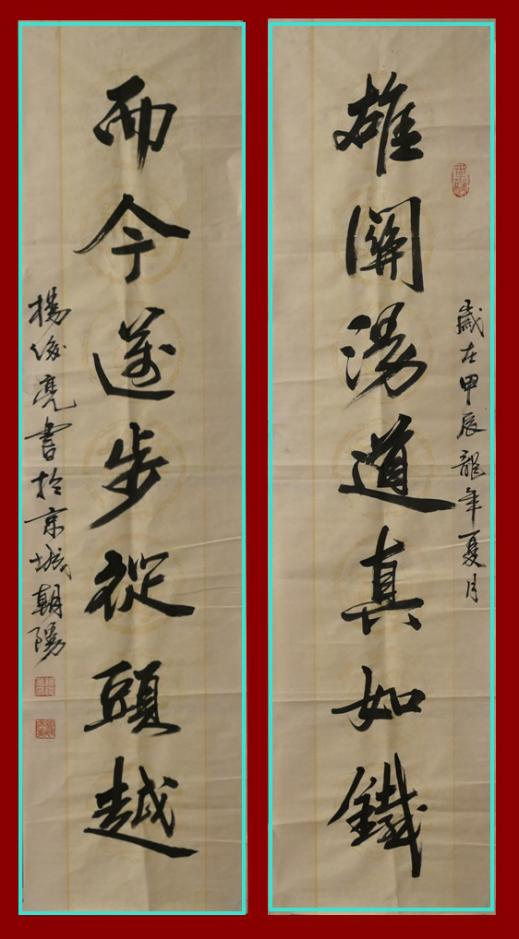 歲在甲辰龍年夏月
雄關漫道真如鐵
而今邁步從頭越
楊俊亮書於京城朝陽